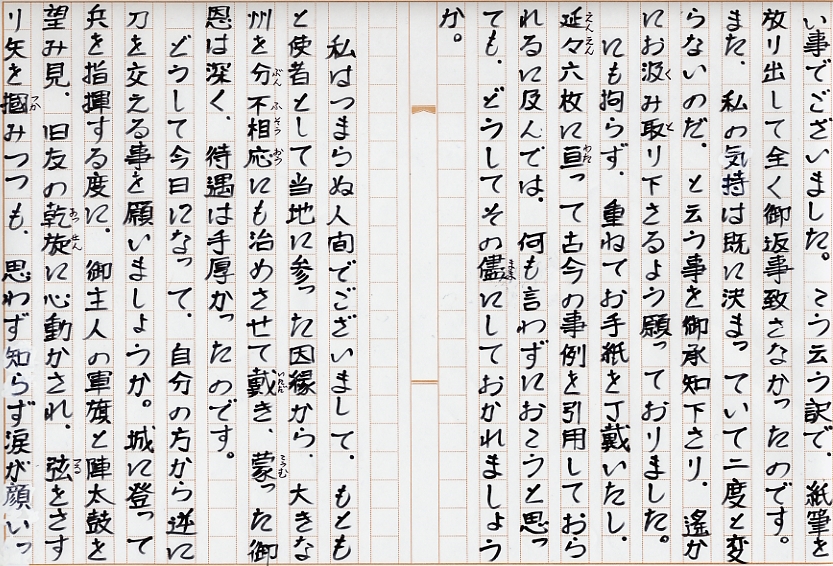 い事でございました。こう云う訳で、紙筆を
放り出して全く御返事致さなかったのです。
また、私の気持は既に決まっていて二度と変
らないのだ、と云う事を御承知下さり、遙か
にお汲み取り下さるよう願っておりました。
にも拘らず、重ねてお手紙を丁戴いたし、
延々六枚に亘って古今の事例を引用しておら
れるに及んでは、何も言わずにおこうと思っ
ても、どうしてその儘にしておかれましょう
か。
私はつまらぬ人間でございまして、もとも
と使者として当地に参った因縁から、大きな
州を分不相応にも治めさせて戴き、蒙った御
恩は深く、待遇は手厚かったのです。
どうして今日になって、自分の方から逆に
刀を交える事を願いましょうか。城に登って
兵を指揮する度に、御主人の軍旗と陣太鼓を
望み見、旧友の乾旋に心動かされ、弦をさす
り矢を摑みつつも、思わず知らず涙が顔いっ